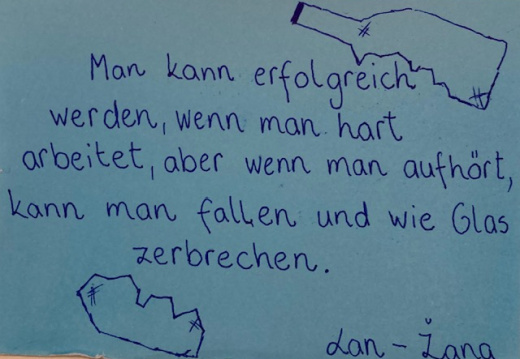 Man kann erfolgreich
werden, wenn man hart
arbeitet, aber wenn man aufhört,
kann man fallen und wie Glas
zerbrechen.
Lan - Žana